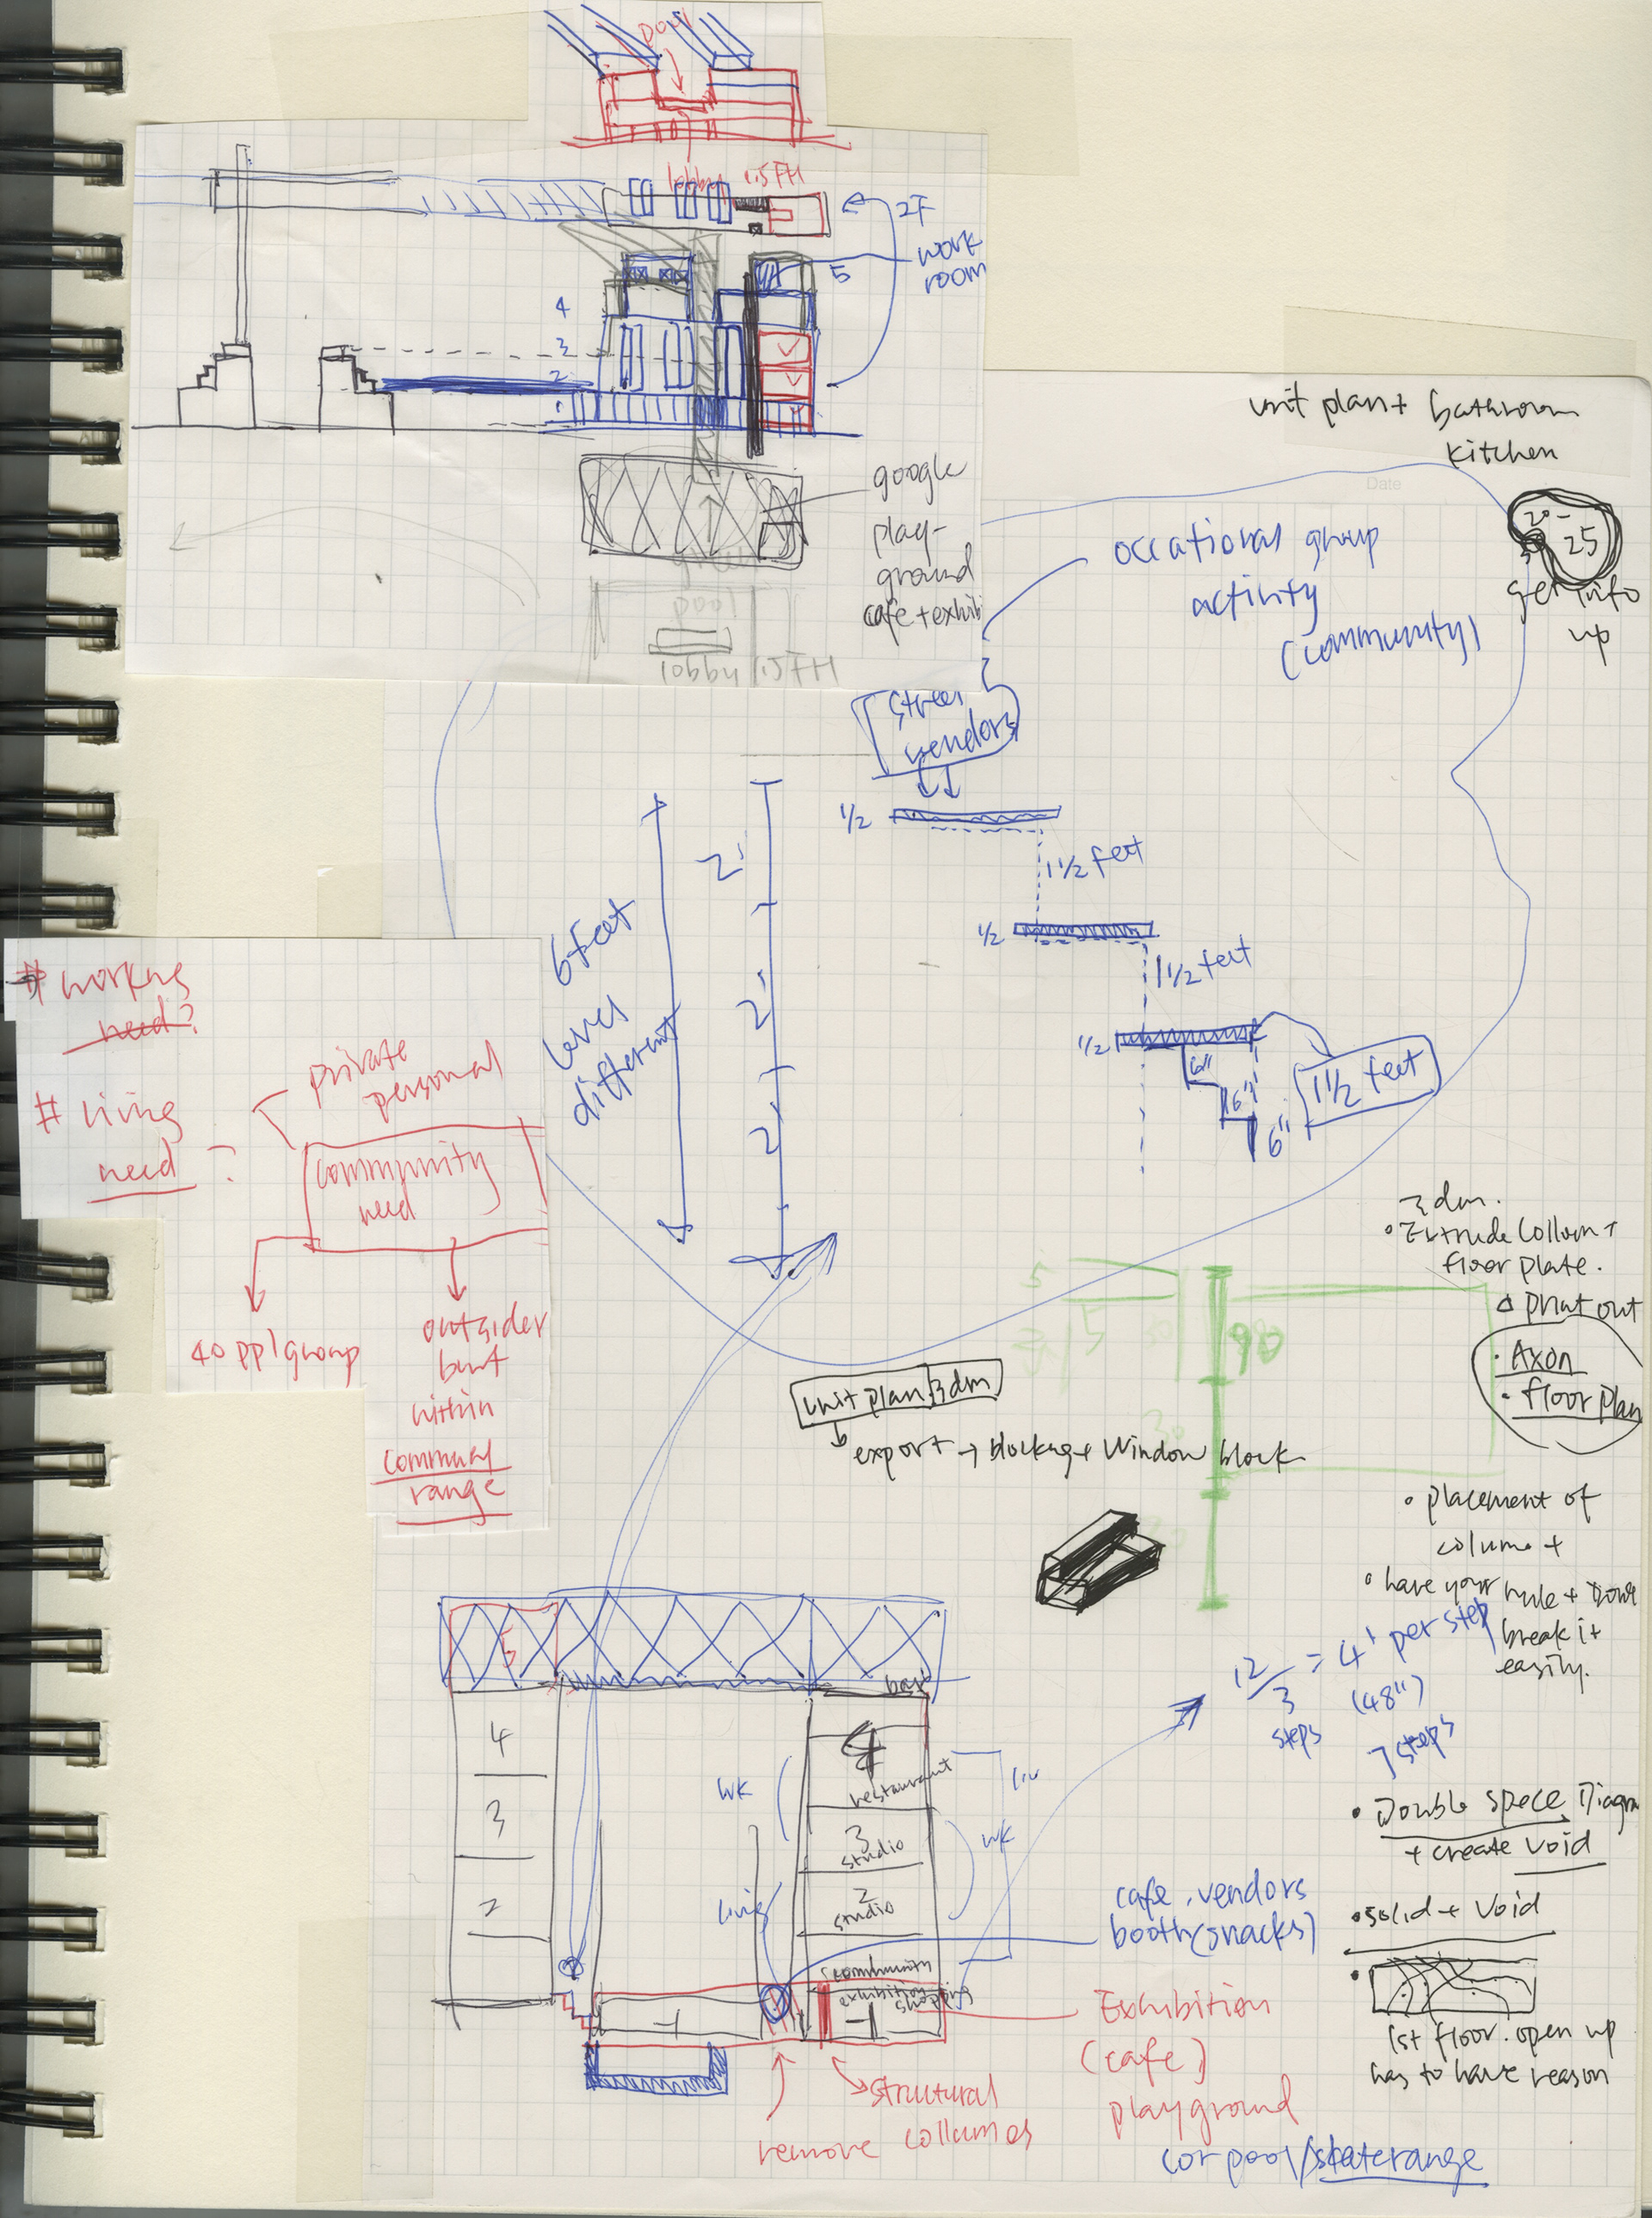 pool
lobby 1.5FH
2F
work
room
5
4
3
2
1
google
play-
ground
cafe + exhibi
pool
lobby 1.5FH
unit plan + bathroom
kitchen
Date
20-
25
get info
up
occational group
activity
(community)
street
vendors
1/2
1 1/2 feet
1/2
1 1/2 feet
1/2
6"
6"
6"
1 1/2 feet
2'
2'
2'
6 Feet
levels
different
# workng
need?
# living
need ?
private
personal
community
need
40 ppl group
outsider
but
within
communal
range
3dm.
• Extrude Collum +
floor plate.
print out
• Axon
• floor plan
5
5
90
30
unit plan 3dm
export → blocking + Window block
• placement of
colum +
• have your rule + Dont
break it
easily.
12/3 = 4' per step
steps
(48")
7 steps
• Double spece Diagram
+ create void
• solid + void
1st floor. open up
has to have reason
5
bar
4
3
2
4
restaurant
3
studio
2
studio
community
exhibition
shopping
1
1
wk
living
liv
wk
cafe, vendors
booth (snacks)
Exhibition
(cafe)
playground
structural
remove collumes
cor pool/skaterange